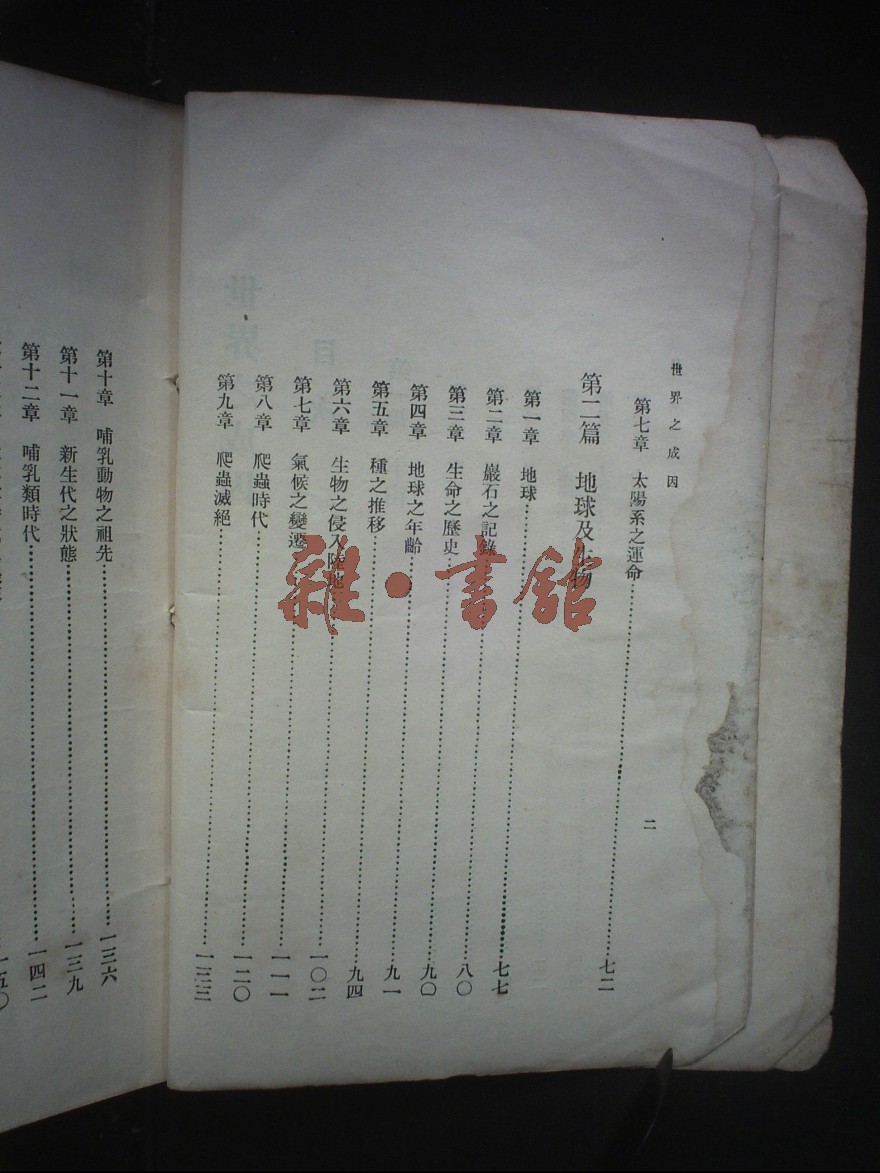 世界之成因
二
第七章 太陽系之運命……七二
第二篇 地球及生物
第一章 地球……七七
第二章 巖石之記錄……八〇
第三章 生命之歷史……九〇
第四章 地球之年齡……九一
第五章 種之推移……九四
第六章 生物之侵入陸地……一〇二
第七章 氣候之變遷……一一一
第八章 爬蟲時代……一二〇
第九章 爬蟲滅絕……一三三
第十章 哺乳動物之祖先……一三六
第十一章 新生代之狀態……一三九
第十二章 哺乳類時代……一四二
雜·書館